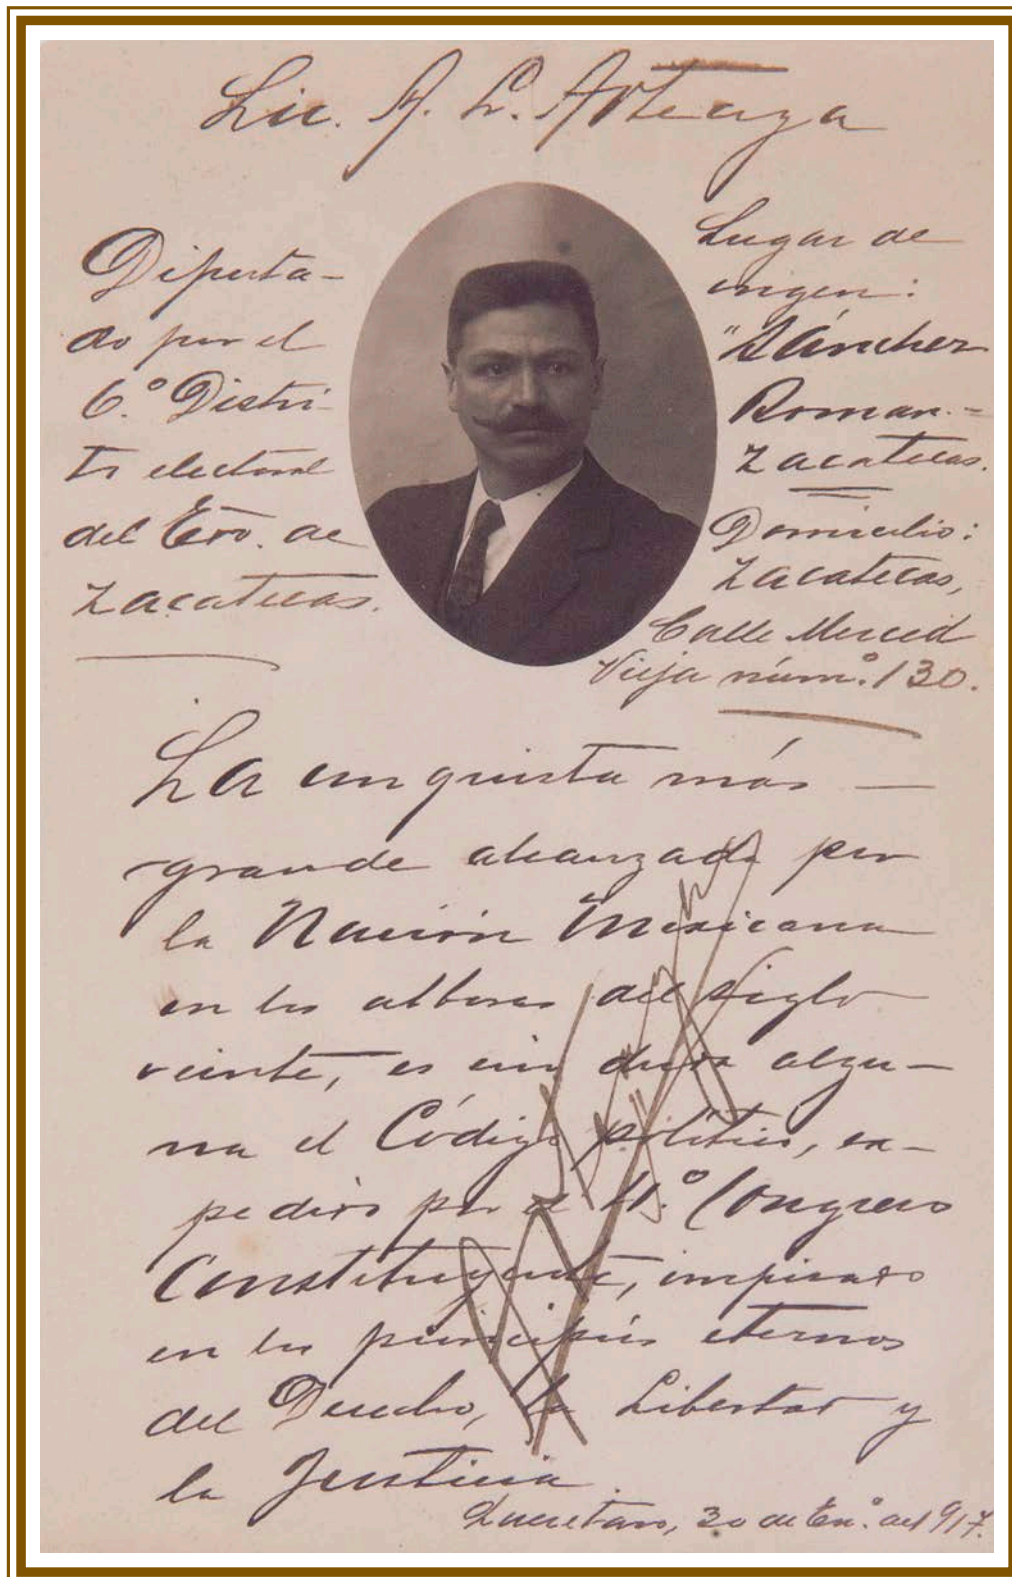 Lic. A. L. Arteaga
Diputa-
do por el
6.º Distri-
to electoral
del Edo. de
Zacatecas.
Lugar de
origen:
"Sánchez
Roman.-
Zacatecas.
Domicilio:
Zacatecas,
Calle Merced
Vieja núm.º 130.
La conquista más —
grande alcanzada por
la Nación Mexicana
en los albores del siglo
veinte, es sin duda algu-
na el Código político, ex-
pedido por el H.º Congreso
Constituyente, inspirado
en los principios eternos
del Derecho, la Libertad y
la Justicia.
Querétaro, 30 de En.º del 917.